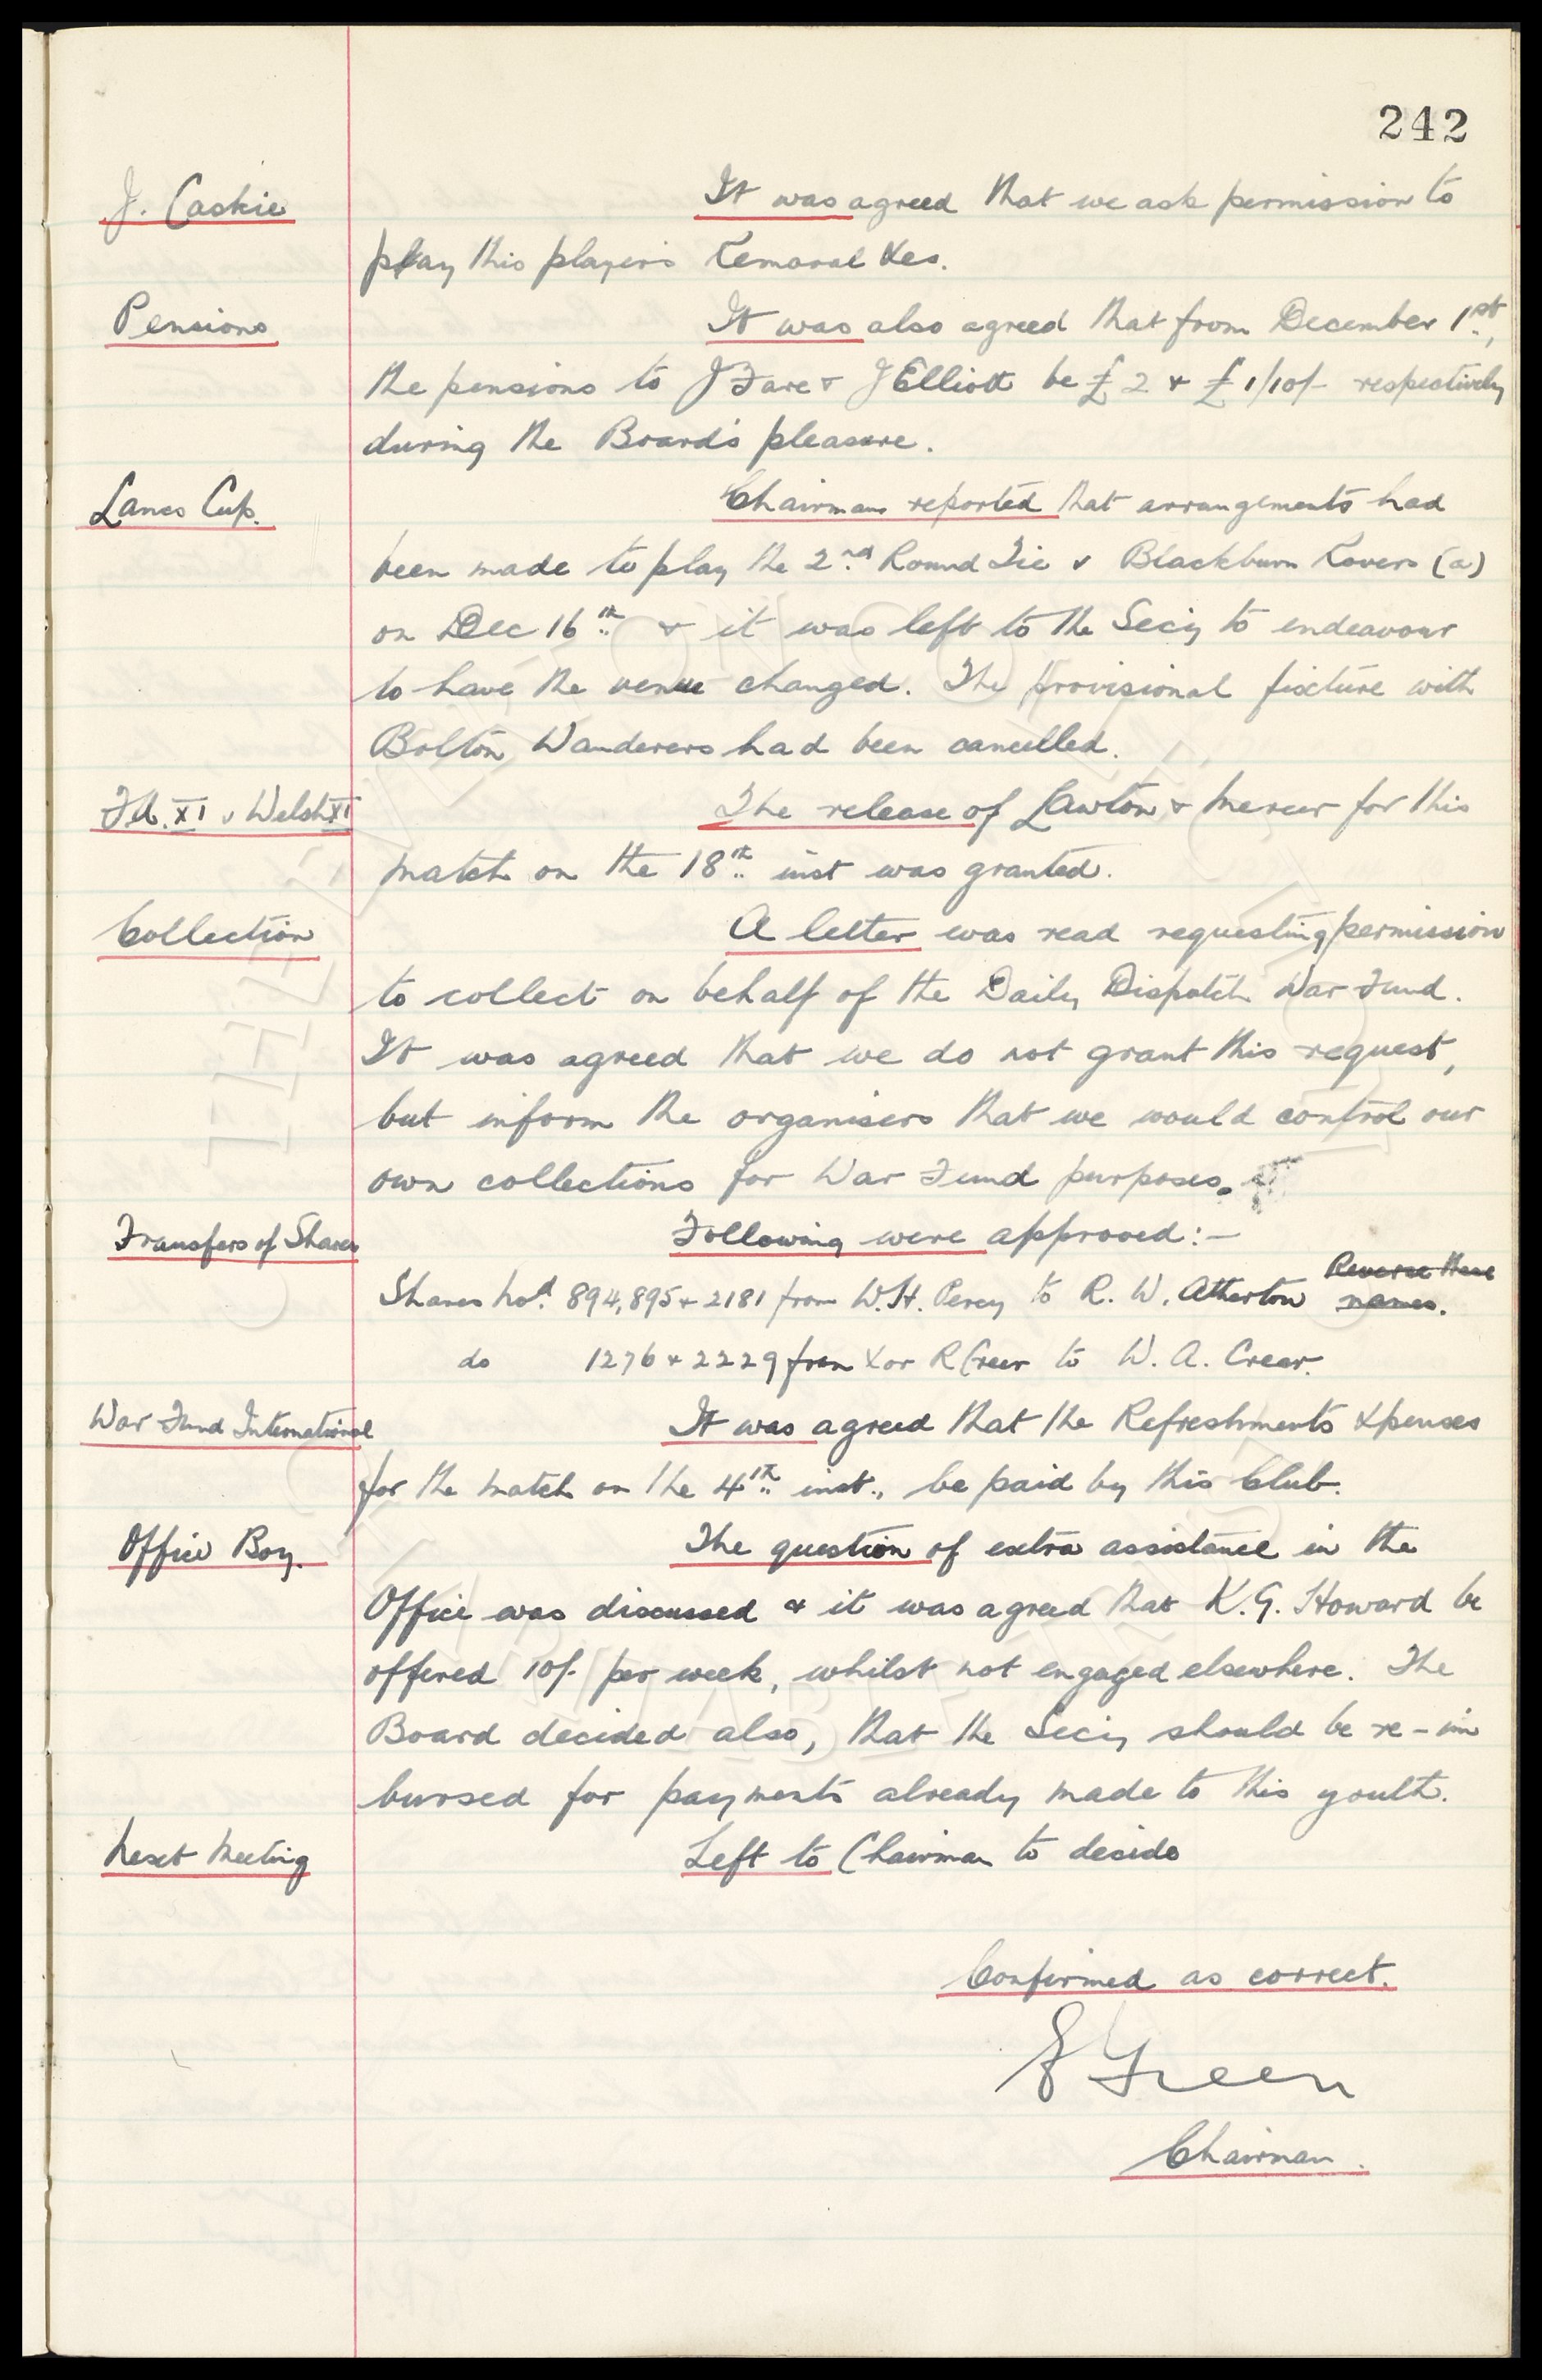 242
J. Caskie It was agreed that we ask permission to
play this player's Removal Xes.
Pensions It was also agreed that from December 1st,
the pensions to J Fare & J Elliott be £2 & £1/10/- respectively
during the Board's pleasure.
Lancs Cup. Chairman reported that arrangements had
been made to play the 2nd Round Tie v Blackburn Rovers (a)
on Dec 16th & it was left to the Secy to endeavour
to have the venue changed. The provisional fixture with
Bolton Wanderers had been cancelled.
F.A. XI v Welsh XI The release of Lawton & Mercer for this
match on the 18th inst was granted.
Collection A letter was read requesting permission
to collect on behalf of the Daily Dispatch War Fund.
It was agreed that we do not grant this request,
but inform the organisers that we would control our
own collections for War Fund purposes.
Transfers of Shares Following were approved:-
Reverse these
Shares No'd 894,895 & 2181 from W.H. Percy to R. W. Atherton names.
do 1276 & 2229 from Xor R Creer to W. A. Creer.
War Fund International It was agreed that the Refreshments Xpenses
for the match on the 4th inst., be paid by this Club.
Office Boy. The question of extra assistance in the
Office was discussed & it was agreed that K.G. Howard be
offered 10/- per week, whilst not engaged elsewhere. The
Board decided also, that the Secy should be re-im
bursed for payments already made to this youth.
Next Meeting Left to Chairman to decide
Confirmed as correct.
Green
Chairman.